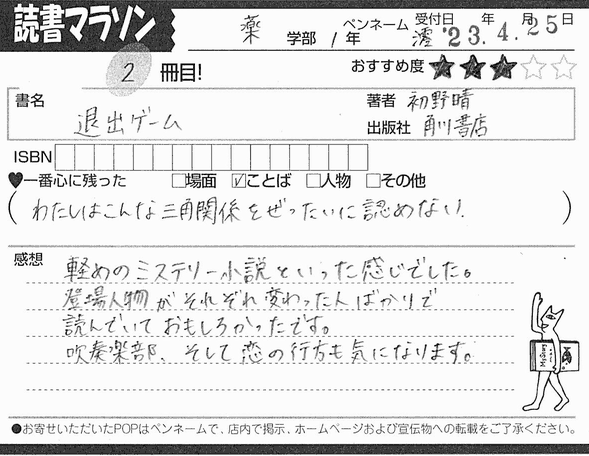 読書マラソン
薬 学部 1年 ペンネーム 澪 受付日 '23年 4月 25日
2 冊目! おすすめ度 ★★★☆☆
書名 退出ゲーム
著者 初野晴
出版社 角川書店
ISBN
♥一番心に残った □場面 ☑ことば □人物 □その他
(わたしはこんな三角関係をぜったいに認めない.)
感想
軽めのミステリー小説といった感じでした。
登場人物がそれぞれ変わった人ばかりで
読んでいておもしろかったです。
吹奏楽部、そして恋の行方も気になります。
Mystery
●お寄せいただいたPOPはペンネームで、店内で掲示、ホームページおよび宣伝物への転載をご了承ください。